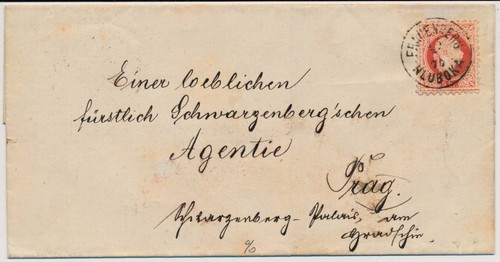 FRAUENBERG
76
HLUBOKA
Einer loeblichen
fürstlich Schwarzenberg'schen
Agentie
Prag.
Schwarzenberg-Palais am
Hradschin
%